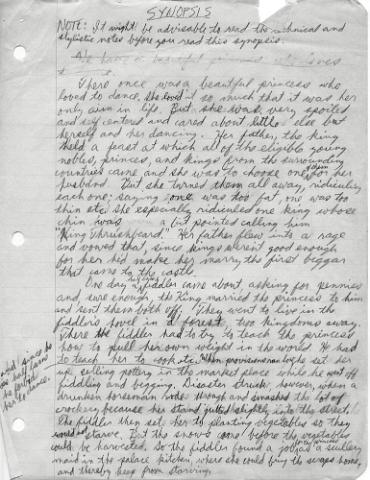 SYNOPSIS
NOTE: It might be advisable to read the technical and
stylistic notes before you read this synopsis.
There once was a beautiful princess who
loved to dance. She loved it so much that it was her
only aim in life. But she was very spoiled
and self centered and cared about little else but
herself and her dancing. Her father, the king
held a feast at which all of the eligible young
nobles, princes, and kings from the surrounding
countries came and she was to choose one of them for her
husband. But she turned them all away, ridiculing
each one; saying one was too fat, one was too
thin etc. She especially ridiculed one king whose
chin was a bit pointed calling him
"King Thrushbeard." Her father flew into a rage
and vowed that, since kings weren't good enough
for her he'd make her marry the first beggar
that came to the castle.
One day a fiddler came about asking for pennies
and, sure enough, the King married the princess to him
and sent them both off. They went to live in the
fiddler's hovel in a forest, two kingdoms away.
There the fiddler had to try to teach the princess
how to pull her own weight in the world. He had
to teach her to cook etc. When provisions ran low he set her
up selling pottery in the market place while he went off
fiddling and begging. Disaster struck, however, when a
drunken horseman rode through and smashed the lot of
crockery because her stand jutted slightly into the street.
The fiddler then set her to planting vegetables so they
wouldn't starve. But the snows came before the vegetables
could be harvested. So the fiddler found a job for the princess as a scullery
maid in the palace kitchen, where she could bring the scraps home,
and thereby keep from starving.
and since he
her to dance.